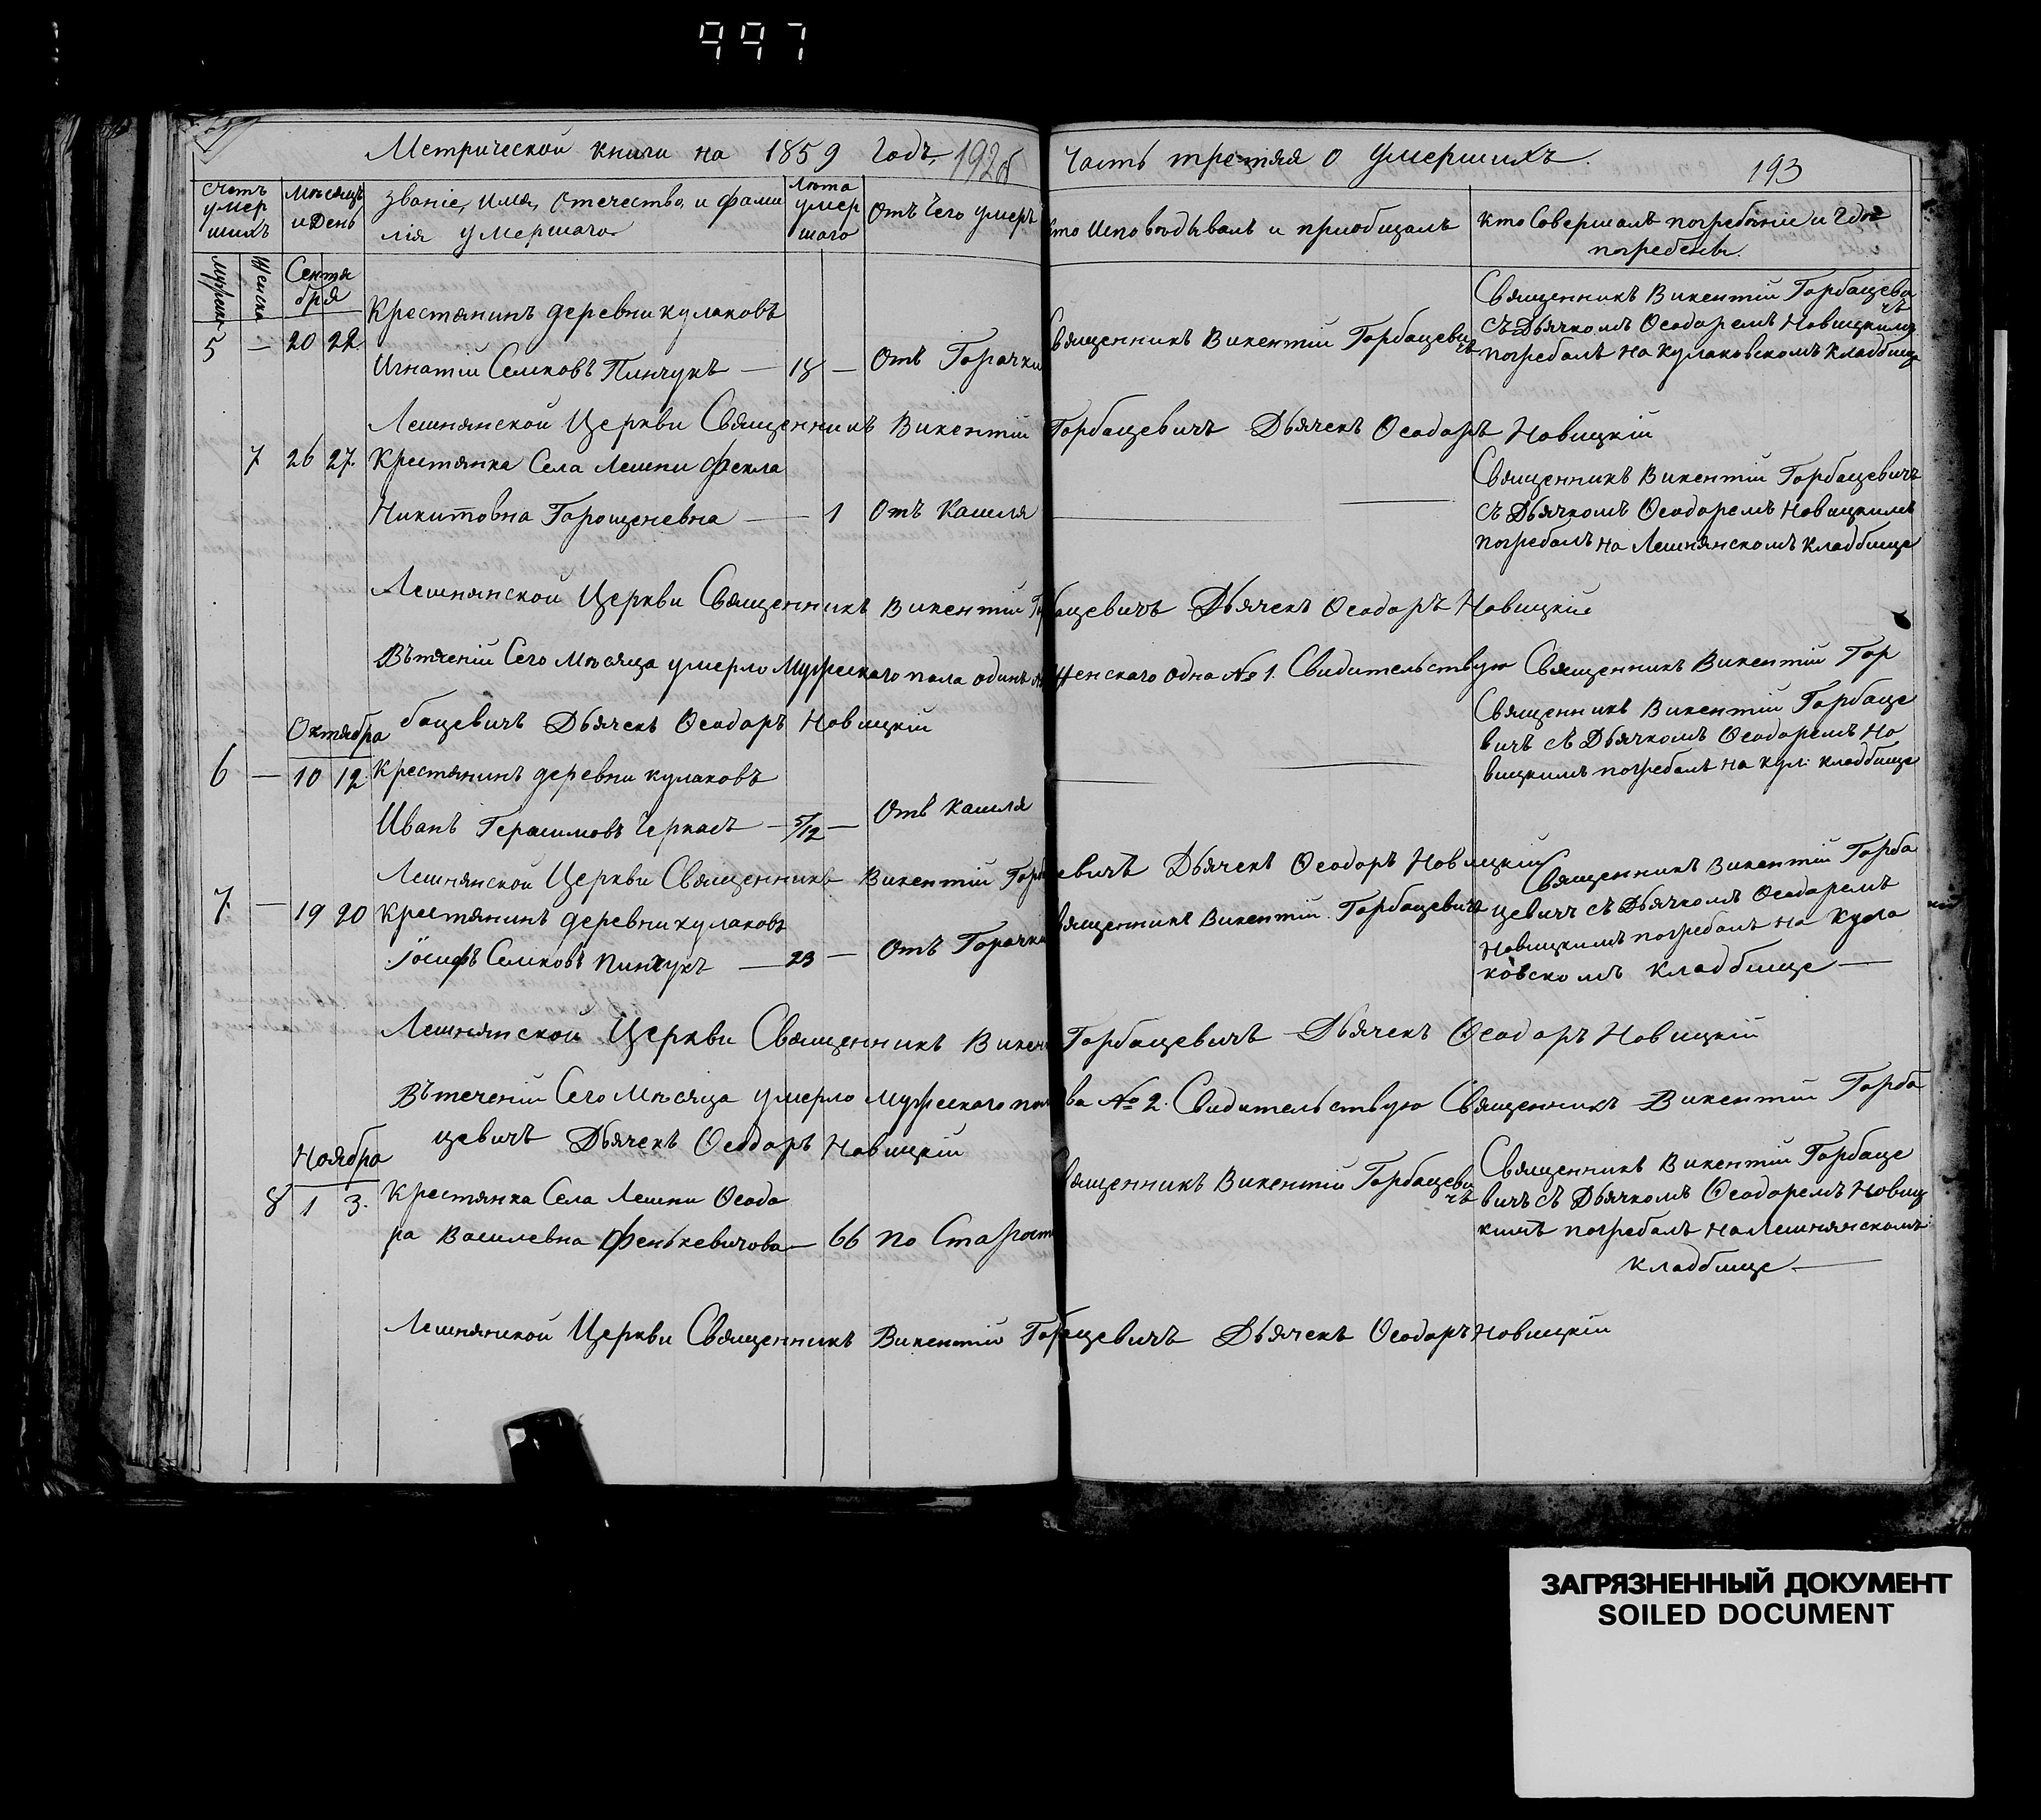 997
Метрической книги на 1859 годъ, 192об Часть третяя о умершихъ. 193
Счетъ умер шихъ
Мѣсяцъ и День
Званіе, имя, отечество, и фами
лія умершаго
Лѣта умер шаго
Отъ Чего умеръ
Кто Исповѣдывалъ и приобщалъ
Кто Совершалъ погребѣніе и гдѣ
погребены.
Мужеска Женска
Сентя
бря
Крестянинъ деревни кулаковъ
5 — 20 22.
Игнатій Семковъ Пинчукъ — 18 — Отъ Горячки
Священникъ Викентій Горбацевичъ
Священникъ Викентій Горбацеви
чъ
съ Дьячкомъ Ѳеодоремъ Новицкимъ
погребалъ на Кулаковскомъ кладбище
Лешнянской Церкви Священникъ Викентій Горбацевичъ Дьячекъ Ѳеодоръ Новицкій
7 26 27. Крестянка Села Лешни Фекла
Никитовна Горощеневна — 1 Отъ Кашля —
Священникъ Викентій Горбацевичъ
съ Дьячкомъ Ѳеодоремъ Новицкимъ
погребалъ на Лешнянскомъ кладбище
Лешнянской Церкви Священникъ Викентій Горбацевичъ Дьячекъ Ѳеодоръ Новицкій
Въ тяченіи Сего Мѣсяца умерло Мужескаго пола одинъ Женскаго одна № 1. Свидительствую Священникъ Викентій Гор
бацевичъ Дьячекъ Ѳеодоръ Новицкій
Октября
6 — 10 12. Крестянинъ деревни кулаковъ
Иванъ Герасимовъ Черкасъ — 5/12 — Отъ кашля —
Священникъ Викентій Горбаце
вичъ съ Дьячкомъ Ѳеодоремъ Но
вицкимъ погребалъ на кул: кладбище
Лешнянской Церкви Священникъ Викентій Горбацевичъ Дьячекъ Ѳеодоръ Новицкій
7 — 19 20 Крестянинъ деревни кулаковъ
Іосифъ Семковъ Пинчукъ — 23 — Отъ Горячки
Священникъ Викентій Горбацевичъ
Священникъ Викентій Горба
цевичъ съ Дьячкомъ Ѳеодоремъ
Новицкимъ погребалъ на Кула
ковскомъ кладбище —
Лешнянской Церкви Священникъ Викен Горбацевичъ Дьячекъ Ѳеодоръ Новицкій
Въ теченіи Сего Мѣсяца умерло Мужескаго пола два № 2. Свидительствую Священникъ Викентій Горба
цевичъ Дьячекъ Ѳеодоръ Новицкій
Ноября
8 1 3. Крестянка Села Лешни Ѳеодо
ра Василевна Фенькевичова — 66 по Старости
Священникъ Викентій Горбацеви
чъ
Священникъ Викентій Горбаце
вичъ съ Дьячкомъ Ѳеодоремъ Новиц
кимъ погребалъ на Лешнянскомъ
кладбище —
Лешнянской Церкви Священникъ Викентій Горбацевичъ Дьячекъ Ѳеодоръ Новицкій
ЗАГРЯЗНЕННЫЙ ДОКУМЕНТ
SOILED DOCUMENT